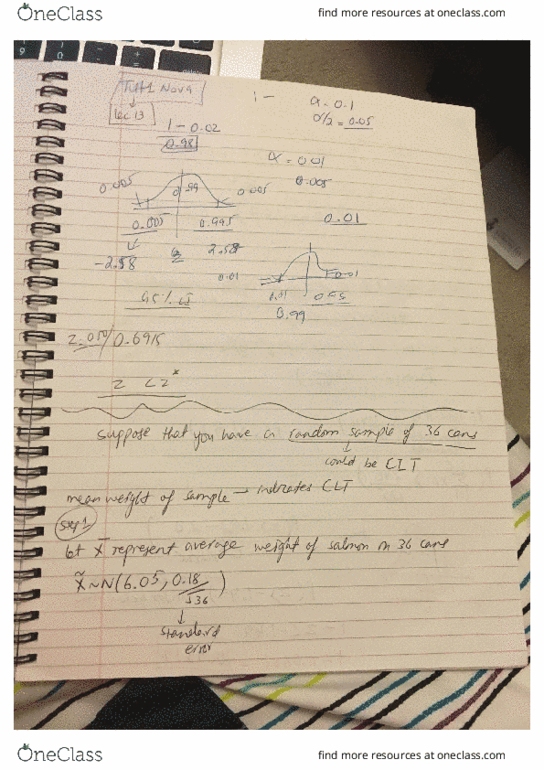 OneClass
find more resources at oneclass.com
Lec 13
1 - 0.02
0.98
1 -
α = 0.1
α/2 = 0.05
α = 0.01
0.005
0.005
0.99
0.005
0.005
0.995
0.01
-2.58
2.58
0.01
0.01
0.01
0.99
95% CI
0.6915
Z < Z*
Suppose that you have a random sample of 36 cans
could be CLT
mean weight of sample → indicates CLT
Step 1
let X̄ represent average weight of salmon in 36 cans
X̄ ~ N(6.05, 0.18/√36)
standard
error
OneClass
find more resources at oneclass.com